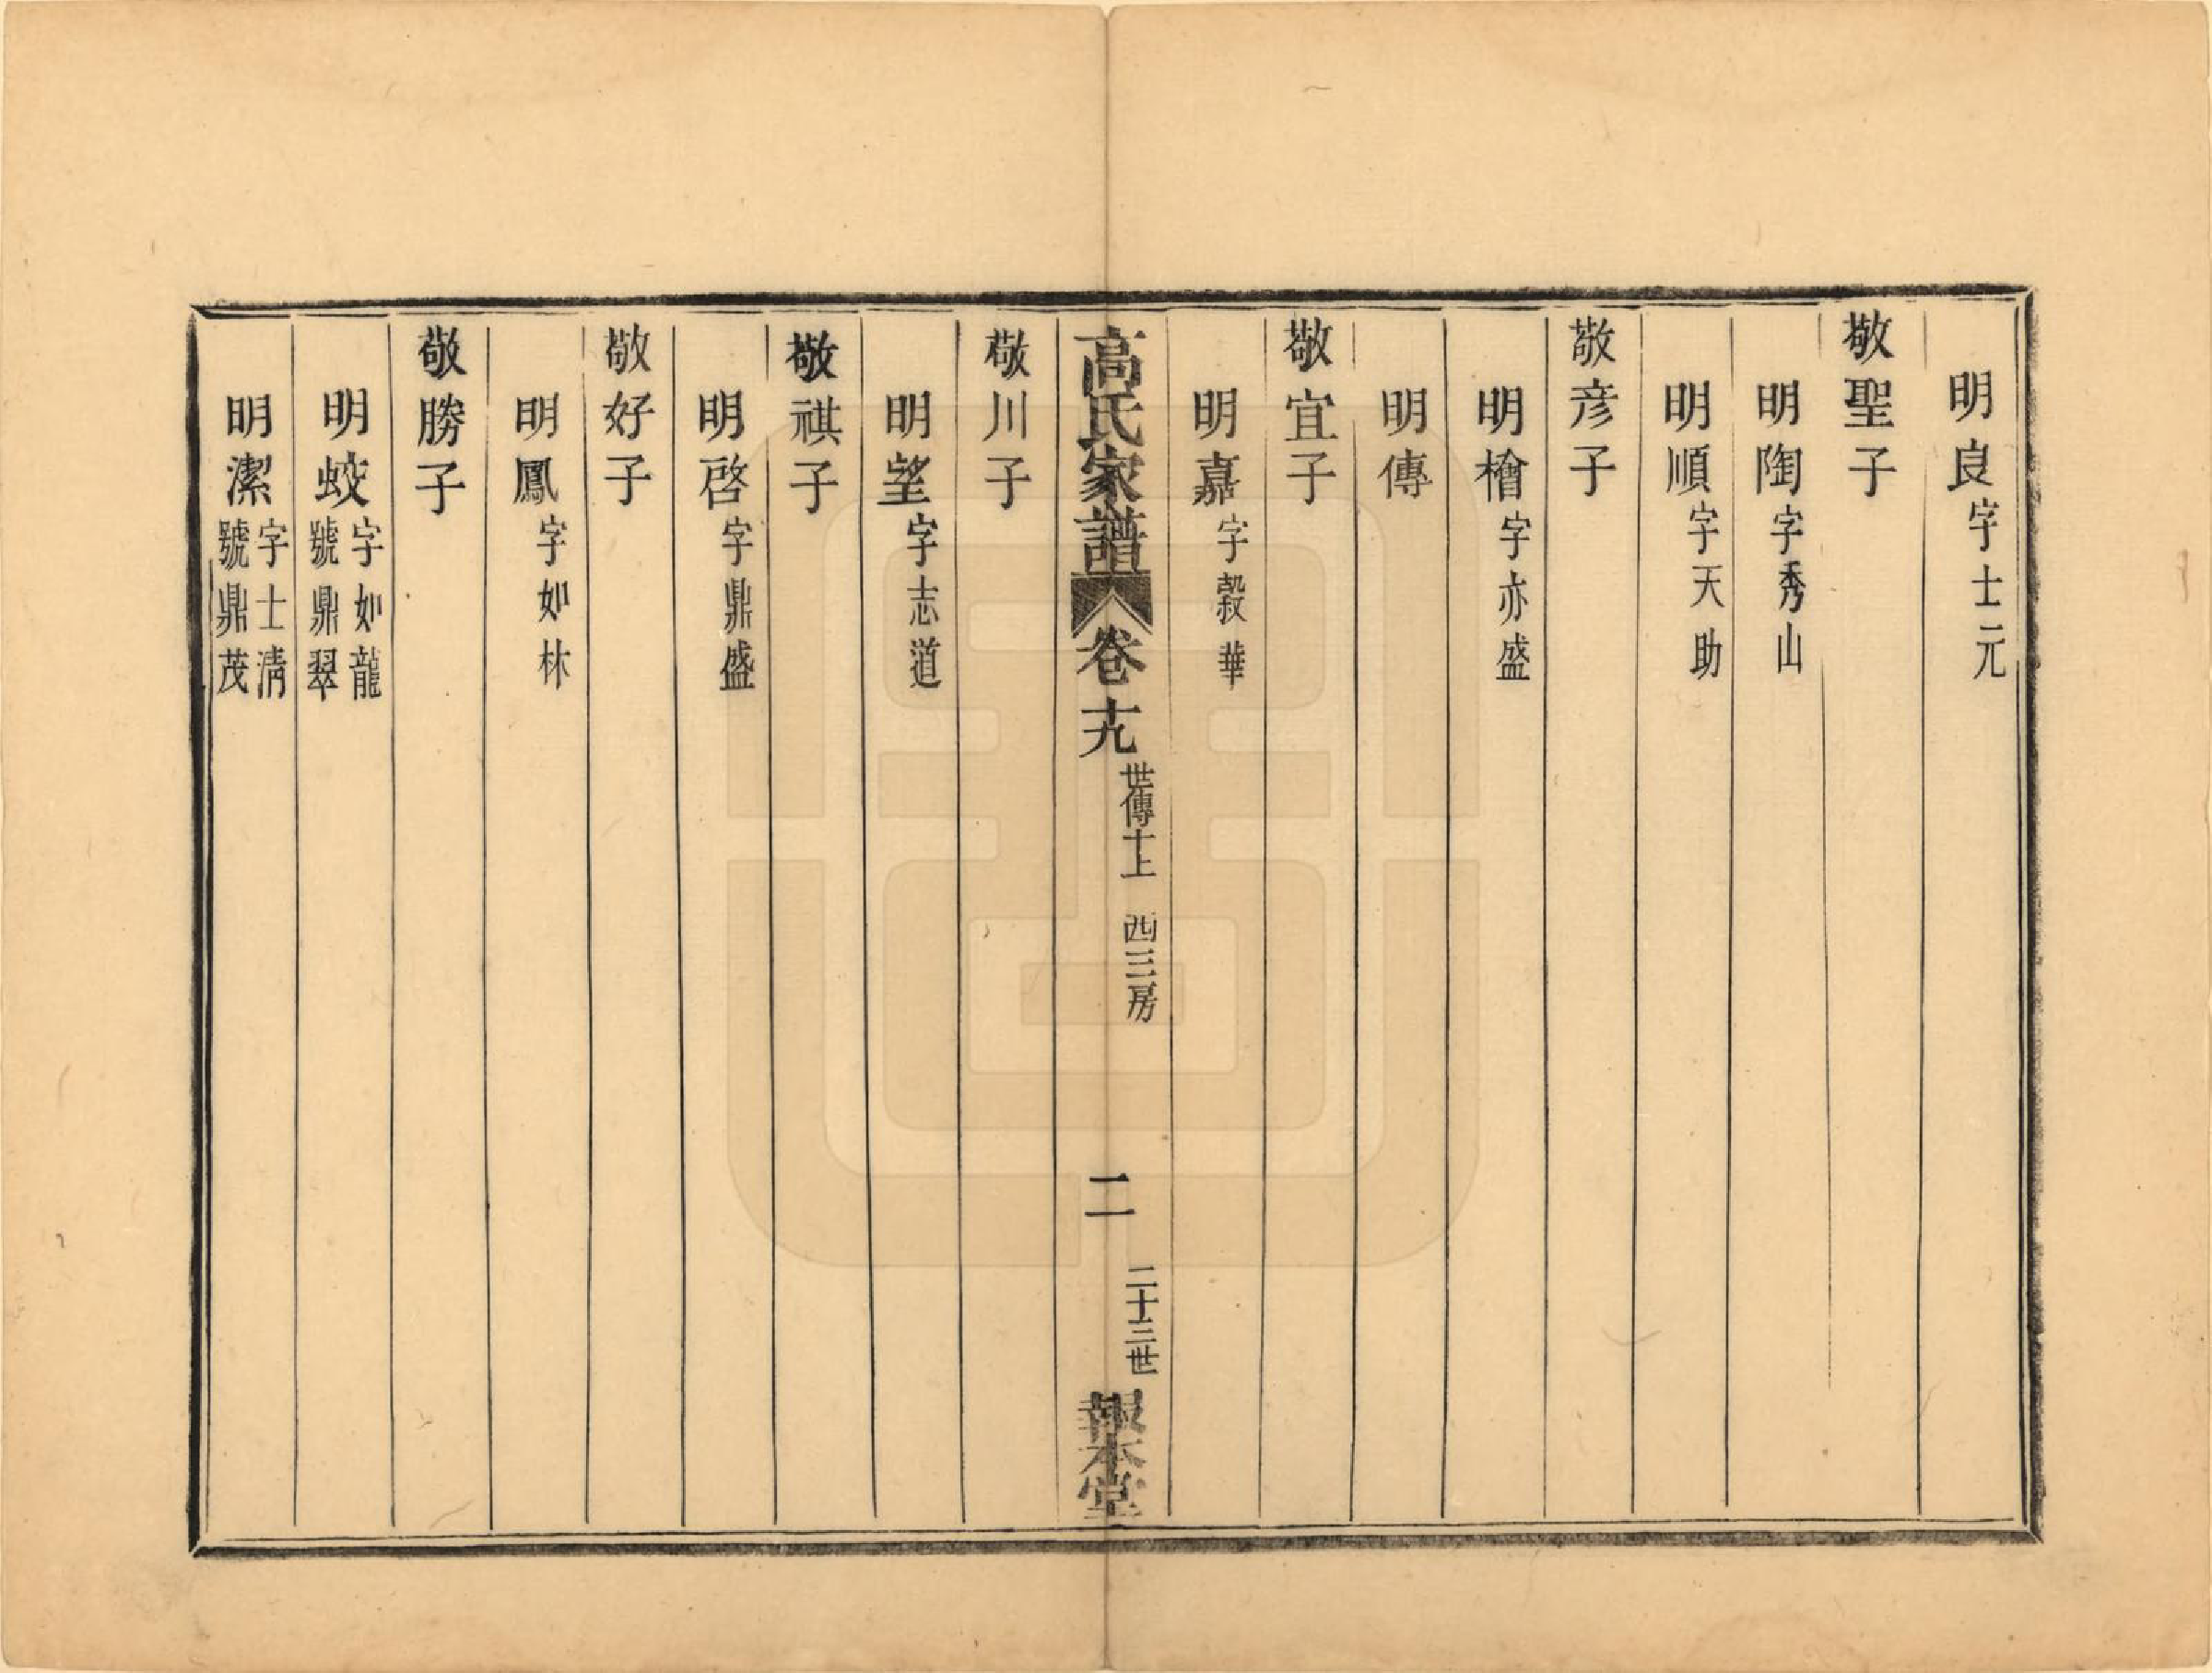 明良字士元
敬聖子
明陶字秀山
明順字天助
敬彦子
明檜字亦盛
明傳
敬宜子
明嘉字榖華
高氏家譜 卷十九 世傳十上 西三房 二 二十三世 報本堂
敬川子
明望字志道
敬祺子
明啓字鼎盛
敬好子
明鳳字如林
敬勝子
明蛟字如龍號鼎翠
明潔字士清號鼎茂